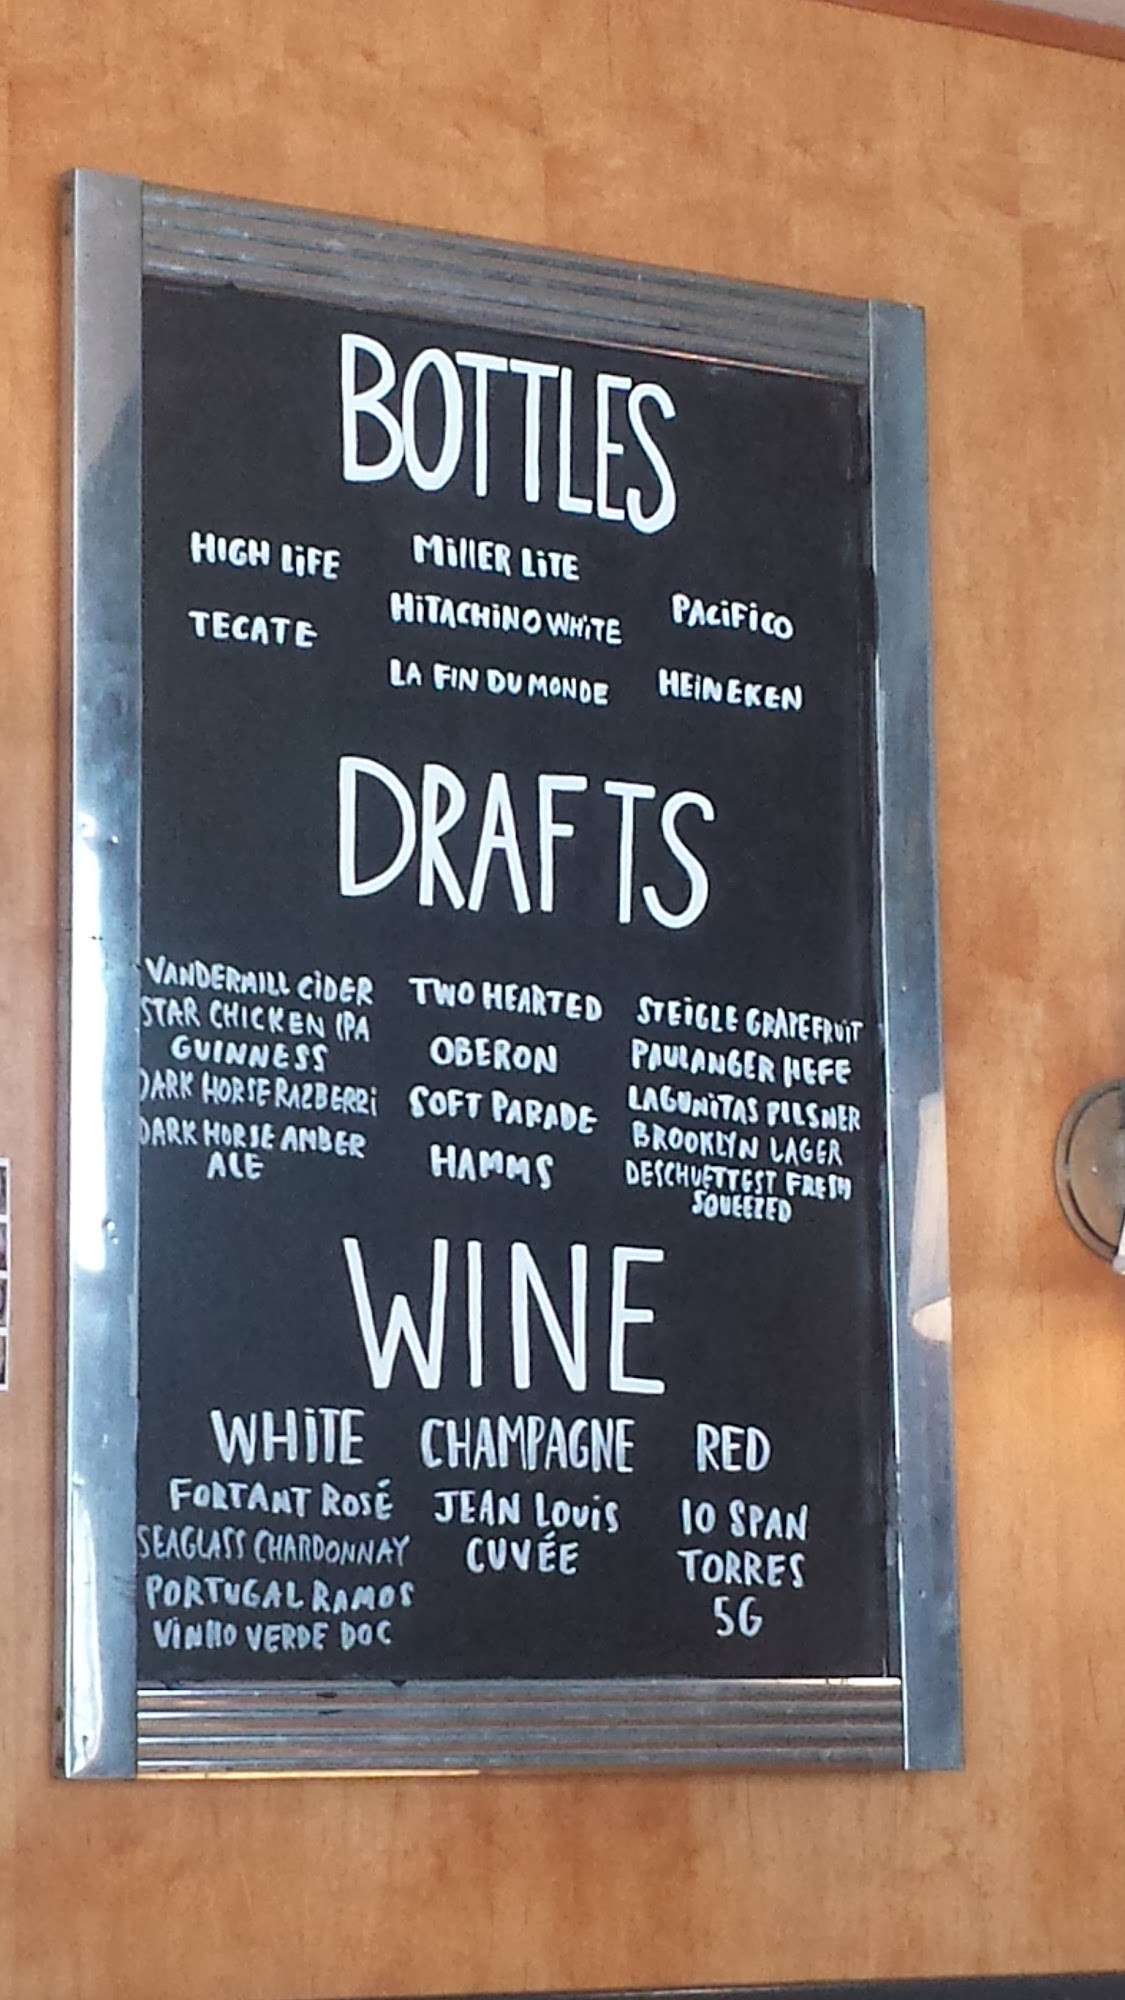 BOTTLES
HIGH LIFE
TECATE
MILLER LITE
HITACHINO WHITE
LA FIN DU MONDE
PACIFICO
HEINEKEN
DRAFTS
VANDERMILL CIDER
STAR CHICKEN IPA
GUINNESS
DARK HORSE RAZBERRI
DARK HORSE AMBER
ALE
TWO HEARTED
OBERON
SOFT PARADE
HAMMS
STEIGLE GRAPEFRUIT
PAULANGER HEFE
LAGUNITAS PILSNER
BROOKLYN LAGER
DESCHUETTEST FRESH
SQUEEZED
WINE
WHITE
FORTANT ROSÉ
SEAGLASS CHARDONNAY
PORTUGAL RAMOS
VINHO VERDE DOC
CHAMPAGNE
JEAN LOUIS
CUVÉE
RED
10 SPAN
TORRES
5G